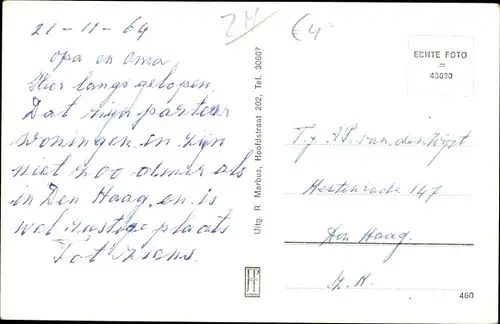 21-11-64
opa en oma
Hier langs gelopen.
Dat zijn parterr
woningen en zijn
niet zoo als
in Den Haag, en is
wel rustige plaats
Tot ziens.
ZH
€4
Uitg. R. Marbus, Hoofdstraat 202, Tel. 30607
ECHTE FOTO
=
43630
v. der Wijst
147
Den Haag.
Z. H.
460